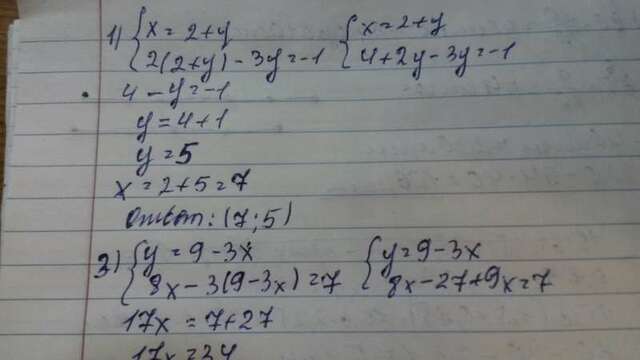 1) { x = 2+y { x = 2+y
2(2+y) - 3y = -1 4+2y-3y=-1
4 - y = -1
y = 4+1
y = 5
x = 2+5 = 7
Ответ: (7; 5)
2) { y = 9 - 3x { y = 9-3x
8x - 3(9-3x) = 7 8x-27+9x=7
17x = 7+27
17x = 34